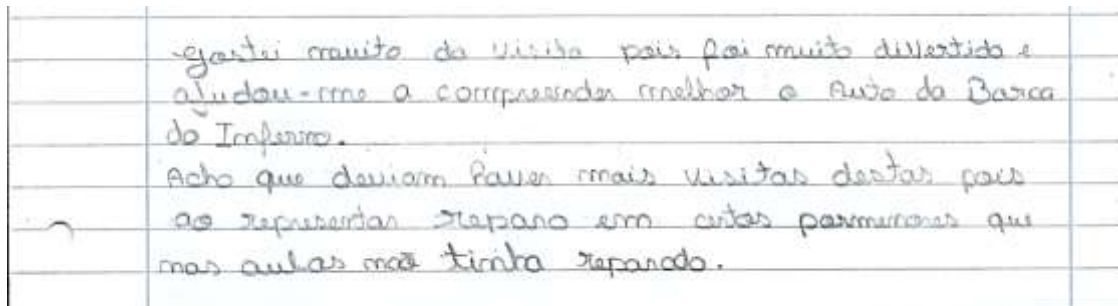 Gostei muito da visita pois foi muito divertido e
ajudou-me a compreender melhor o Auto da Barca
do Inferno.
Acho que deviam haver mais visitas destas pois
ao representar reparo em certos pormenores que
nas aulas não tinha reparado.